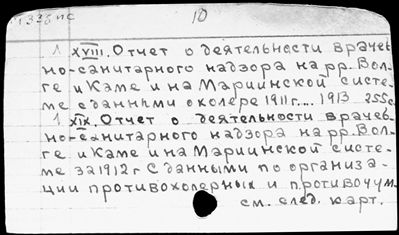 10
1 XVIII. Отчет о деятельности врачеб
но-санитарного надзора на рр. Вол-
ге и Каме и на Мариинской систе-
ме с данными о холере 1911 г.... 1913 255с
1 XIX. Отчет о деятельности врачеб-
но-санитарного надзора на рр. Вол-
ге и Каме и на Мариинской систе-
ме за 1912 г с данными по организа-
ции противохолерных и противочум-
см. след. карт.